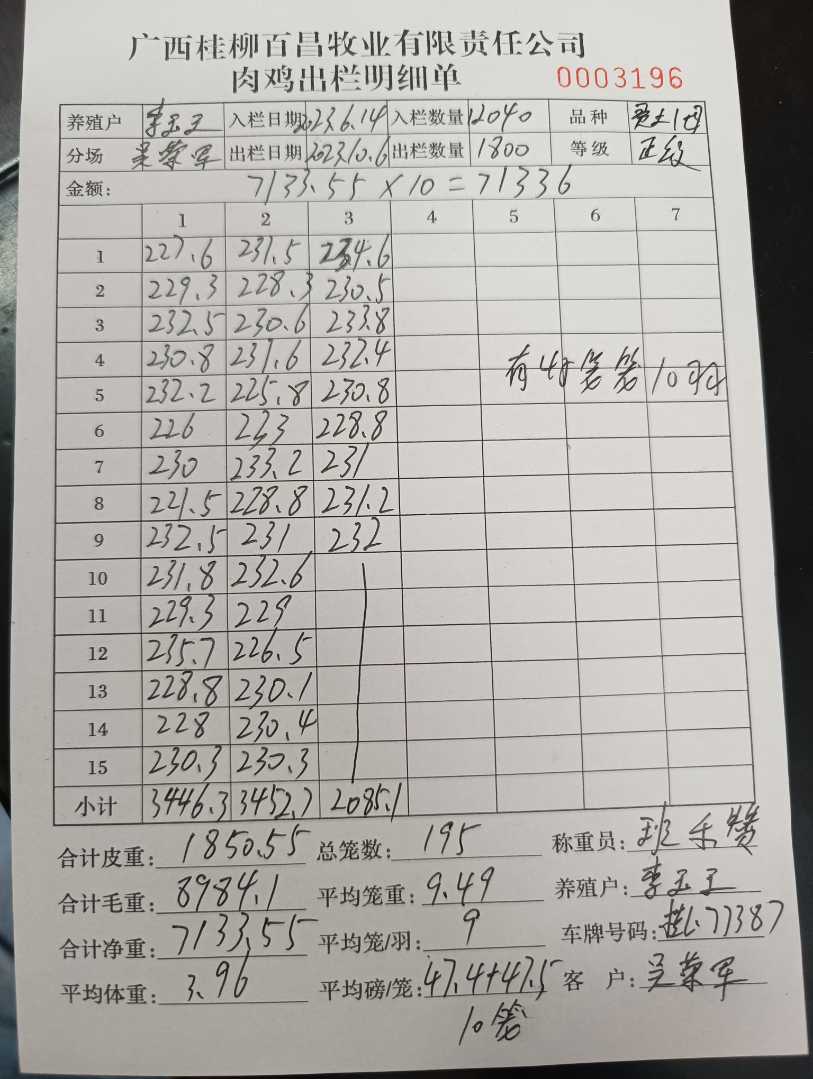 广西桂柳百昌牧业有限责任公司
肉鸡出栏明细单 0003196
养殖户 李玉王 入栏日期 2023.6.14 入栏数量 12040 品种
分场 吴荣军 出栏日期 2023.10.6 出栏数量 1800 等级 正级
金额: 7133.55 × 10 = 71336
1 2 3 4 5 6 7
1 227.6 231.5 234.6
2 229.3 228.3 230.5
3 232.5 230.6 233.8
4 230.8 231.6 232.4
5 232.2 225.8 230.8 有45笼笼10羽
6 226 223 228.8
7 230 233.2 231
8 221.5 228.8 231.2
9 232.5 231 232
10 231.8 232.6
11 229.3 229
12 235.7 226.5
13 228.8 230.1
14 228 230.4
15 230.3 230.3
小计 3446.3 3452.7 2085.1
合计皮重: 1850.55 总笼数: 195 称重员:
合计毛重: 8984.1 平均笼重: 9.49 养殖户: 李玉王
合计净重: 7133.55 平均笼/羽: 9 车牌号码: 桂L·77387
平均体重: 3.96 平均磅/笼: 47.4+47.5 客 户: 吴荣军
10笼